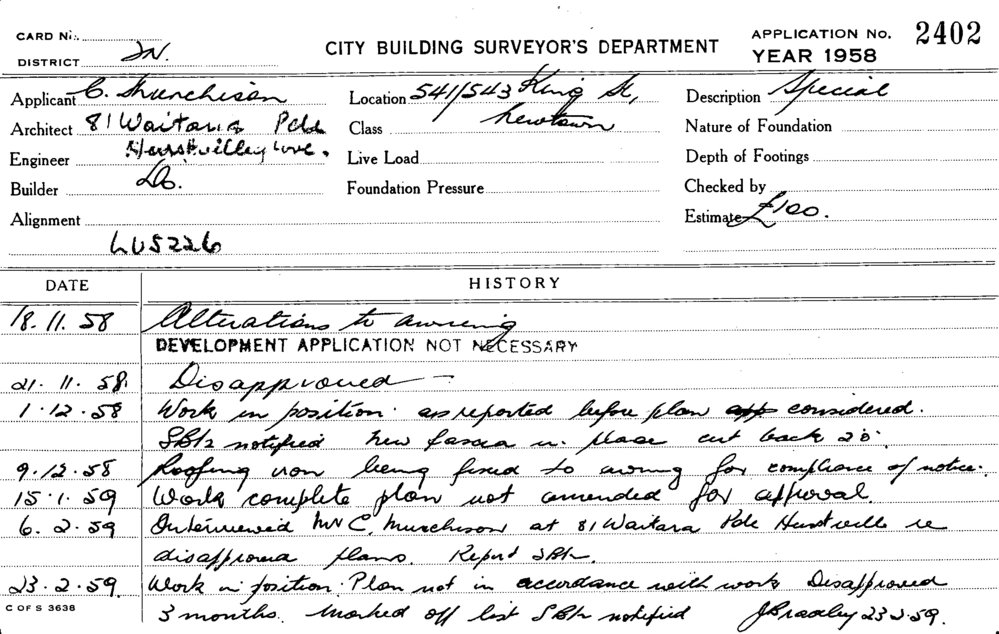 CARD No.
DISTRICT JN.
CITY BUILDING SURVEYOR'S DEPARTMENT
APPLICATION No. 2402
YEAR 1958
Applicant C. Murchison
Architect 81 Waitara Pde
Engineer Hurstville Grove.
Builder Do.
Alignment
LU5226
Location 541/543 King St,
Class Newtown
Live Load
Foundation Pressure
Description Special
Nature of Foundation
Depth of Footings
Checked by
Estimate £100.
DATE HISTORY
18.11.58 Alterations to awning
DEVELOPMENT APPLICATION NOT NECESSARY
21.11.58 Disapproved —
1.12.58 Work in position as reported before plan considered.
notified new fascia in place cut back 2'0".
9.12.58 Roofing iron being fixed to awning for compliance of notice.
15.1.59 Work complete plan not amended for approval.
6.2.59 Interviewed Mr C. Murchison at 81 Waitara Pde Hurstville re
disapproved plans. Report
23.2.59. Work in position. Plan not in accordance with work Disapproved
3 months. Marked off list notified J Bradley 23.2.59.
C OF S 3638